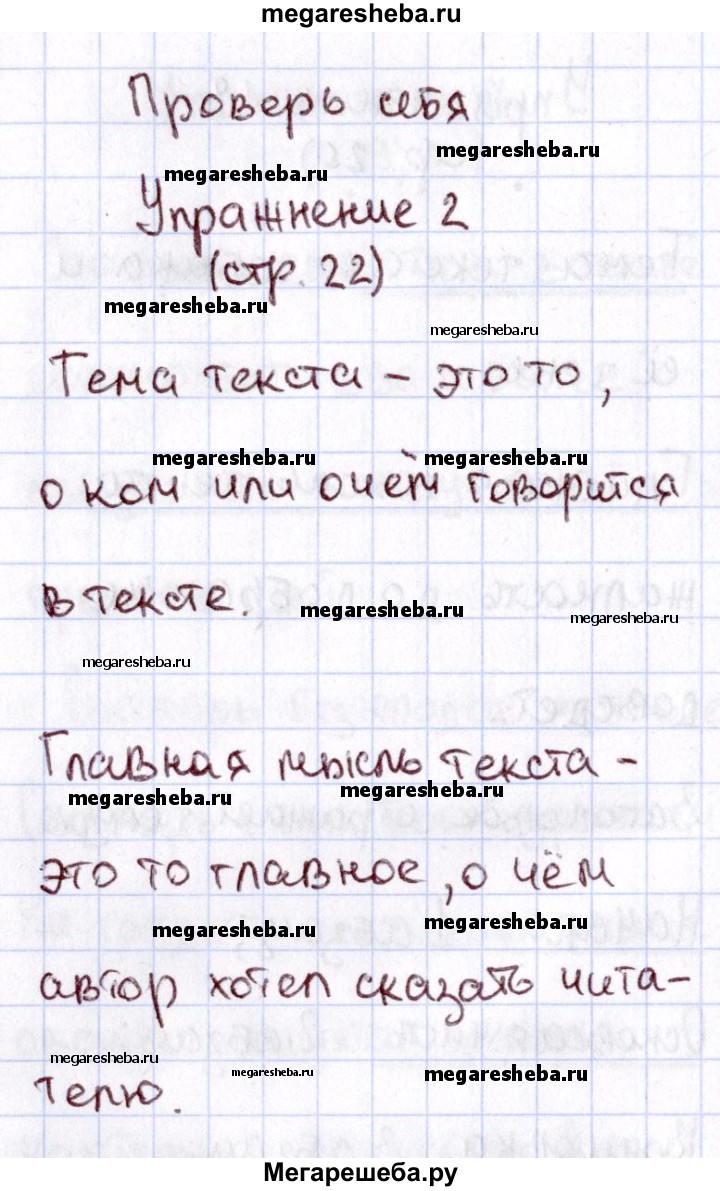 megaresheba.ru
Проверь себя
megaresheba.ru
megaresheba.ru
Упражнение 2
(стр. 22)
megaresheba.ru
megaresheba.ru
Тема текста – это то,
megaresheba.ru megaresheba.ru
о ком или о чём говорится
в тексте. megaresheba.ru megaresheba.ru
megaresheba.ru
Главная мысль текста –
megaresheba.ru megaresheba.ru
это то главное, о чём
megaresheba.ru megaresheba.ru
автор хотел сказать чита-
megaresheba.ru megaresheba.ru megaresheba.ru
телю.
Мегарешеба.ру